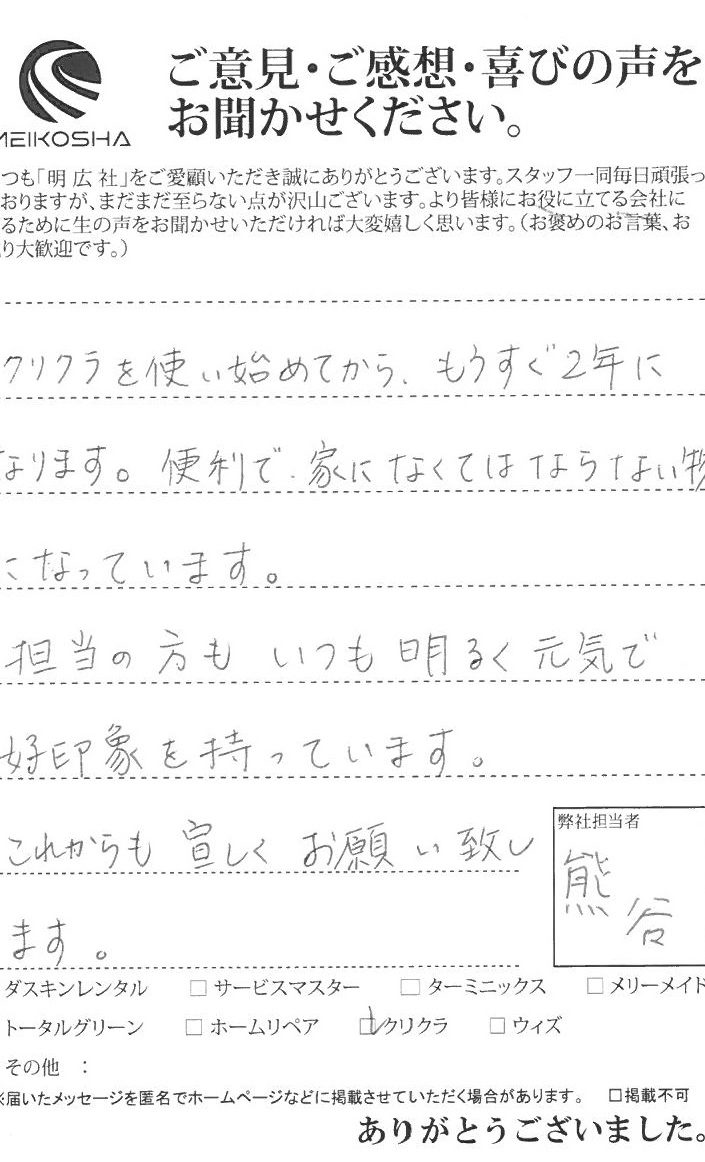 MEIKOSHA
ご意見・ご感想・喜びの声を
お聞かせください。
つも「明広社」をご愛顧いただき誠にありがとうございます。スタッフ一同毎日頑張っ
おりますが、まだまだ至らない点が沢山ございます。より皆様にお役に立てる会社に
るために生の声をお聞かせいただければ大変嬉しく思います。（お褒めのお言葉、お
り大歓迎です。）
クリクラを使い始めてから、もうすぐ2年に
なります。便利で、家になくてはならない物
になっています。
担当の方も いつも明るく元気で
好印象を持っています。
これからも 宜しく お願い致し
ます。
弊社担当者
熊谷
ダスキンレンタル □サービスマスター □ターミニックス □メリーメイド
トータルグリーン □ホームリペア □クリクラ □ウィズ
その他 ：
※届いたメッセージを匿名でホームページなどに掲載させていただく場合があります。 □掲載不可
ありがとうございました。